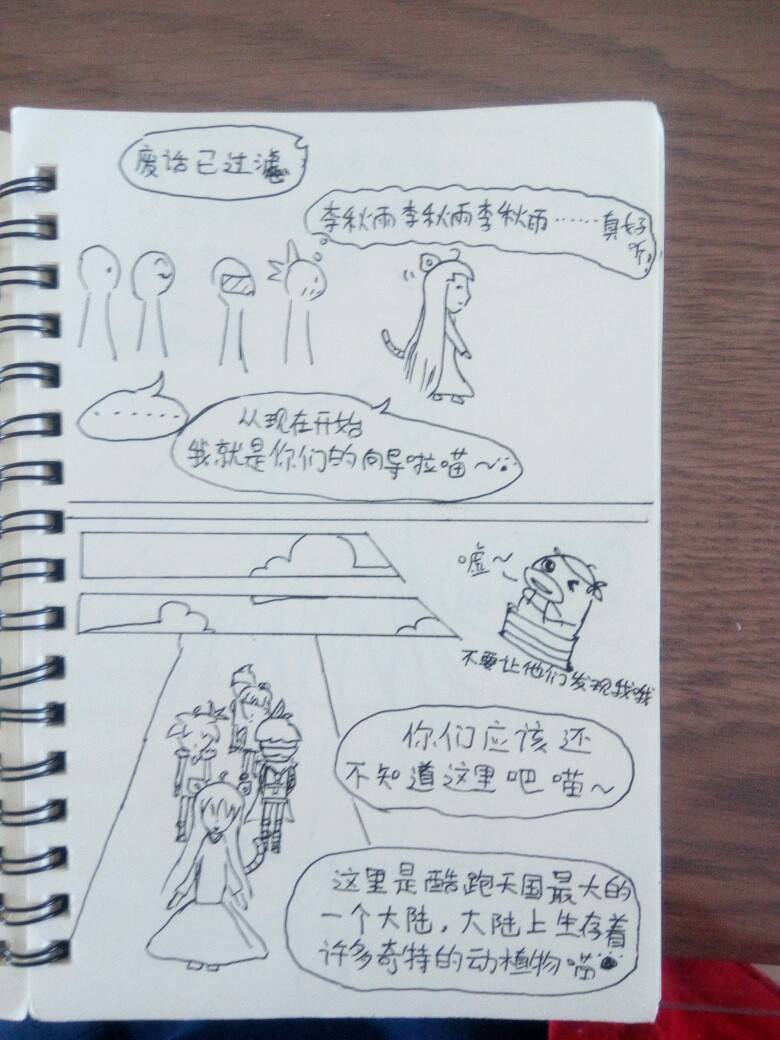 废话已过滤
李秋雨李秋雨李秋雨……真好
听
……
从现在开始
我就是你们的向导啦喵～
嘘～
不要让他们发现我哦
你们应该还
不知道这里吧喵～
这里是酷跑天国最大的
一个大陆，大陆上生存着
许多奇特的动植物喵